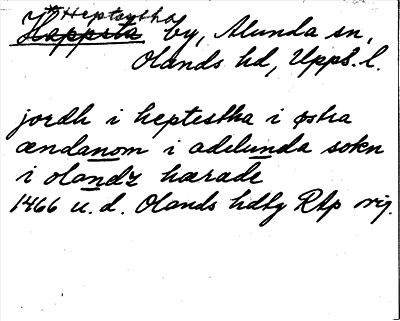 J** Heptaystha
Happsta by, Alunda sn,
Olands hd, Upps. l.
jordh i heptestha i østra
ændanom i adelunda sokn
i olandz hærade
1466 u. d. Olands hdtg RAp orig.